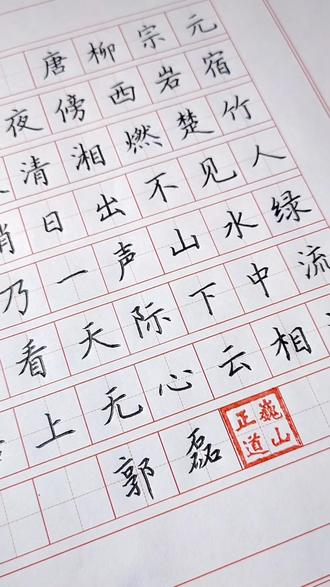 唐柳宗元
夜傍西岩宿
清湘燃楚竹
日出不见人
乃一声山水绿
看天际下中流
上无心云相
郭磊
巍山正道